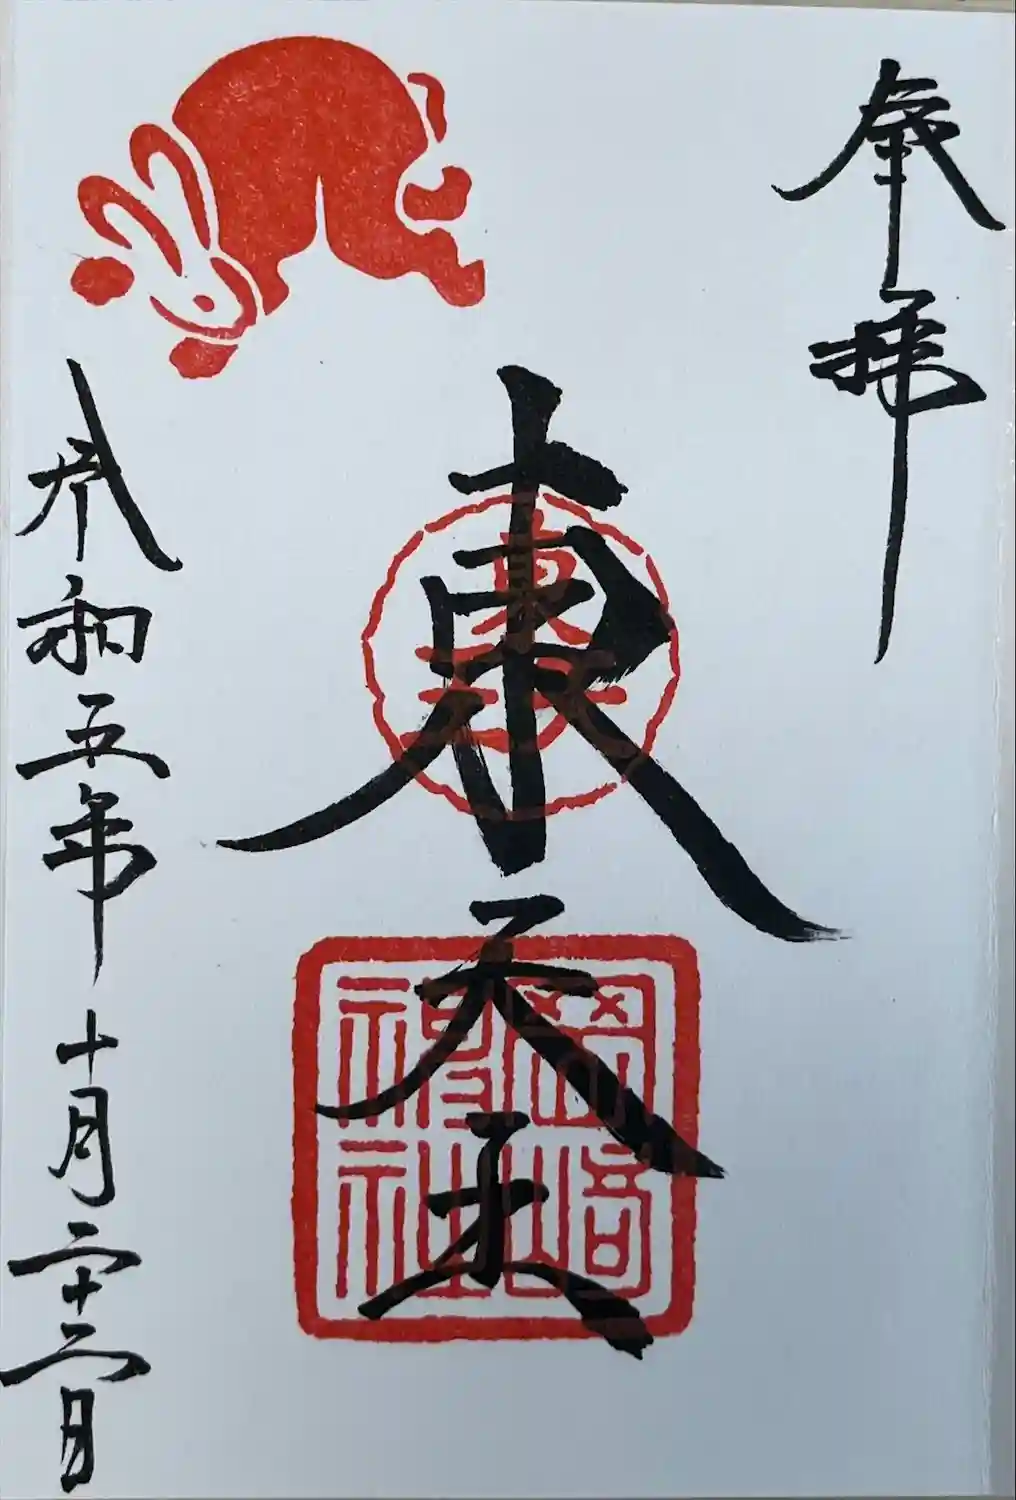 奉拝
東天王
東天王
岡崎神社
令和五年十月二十二日